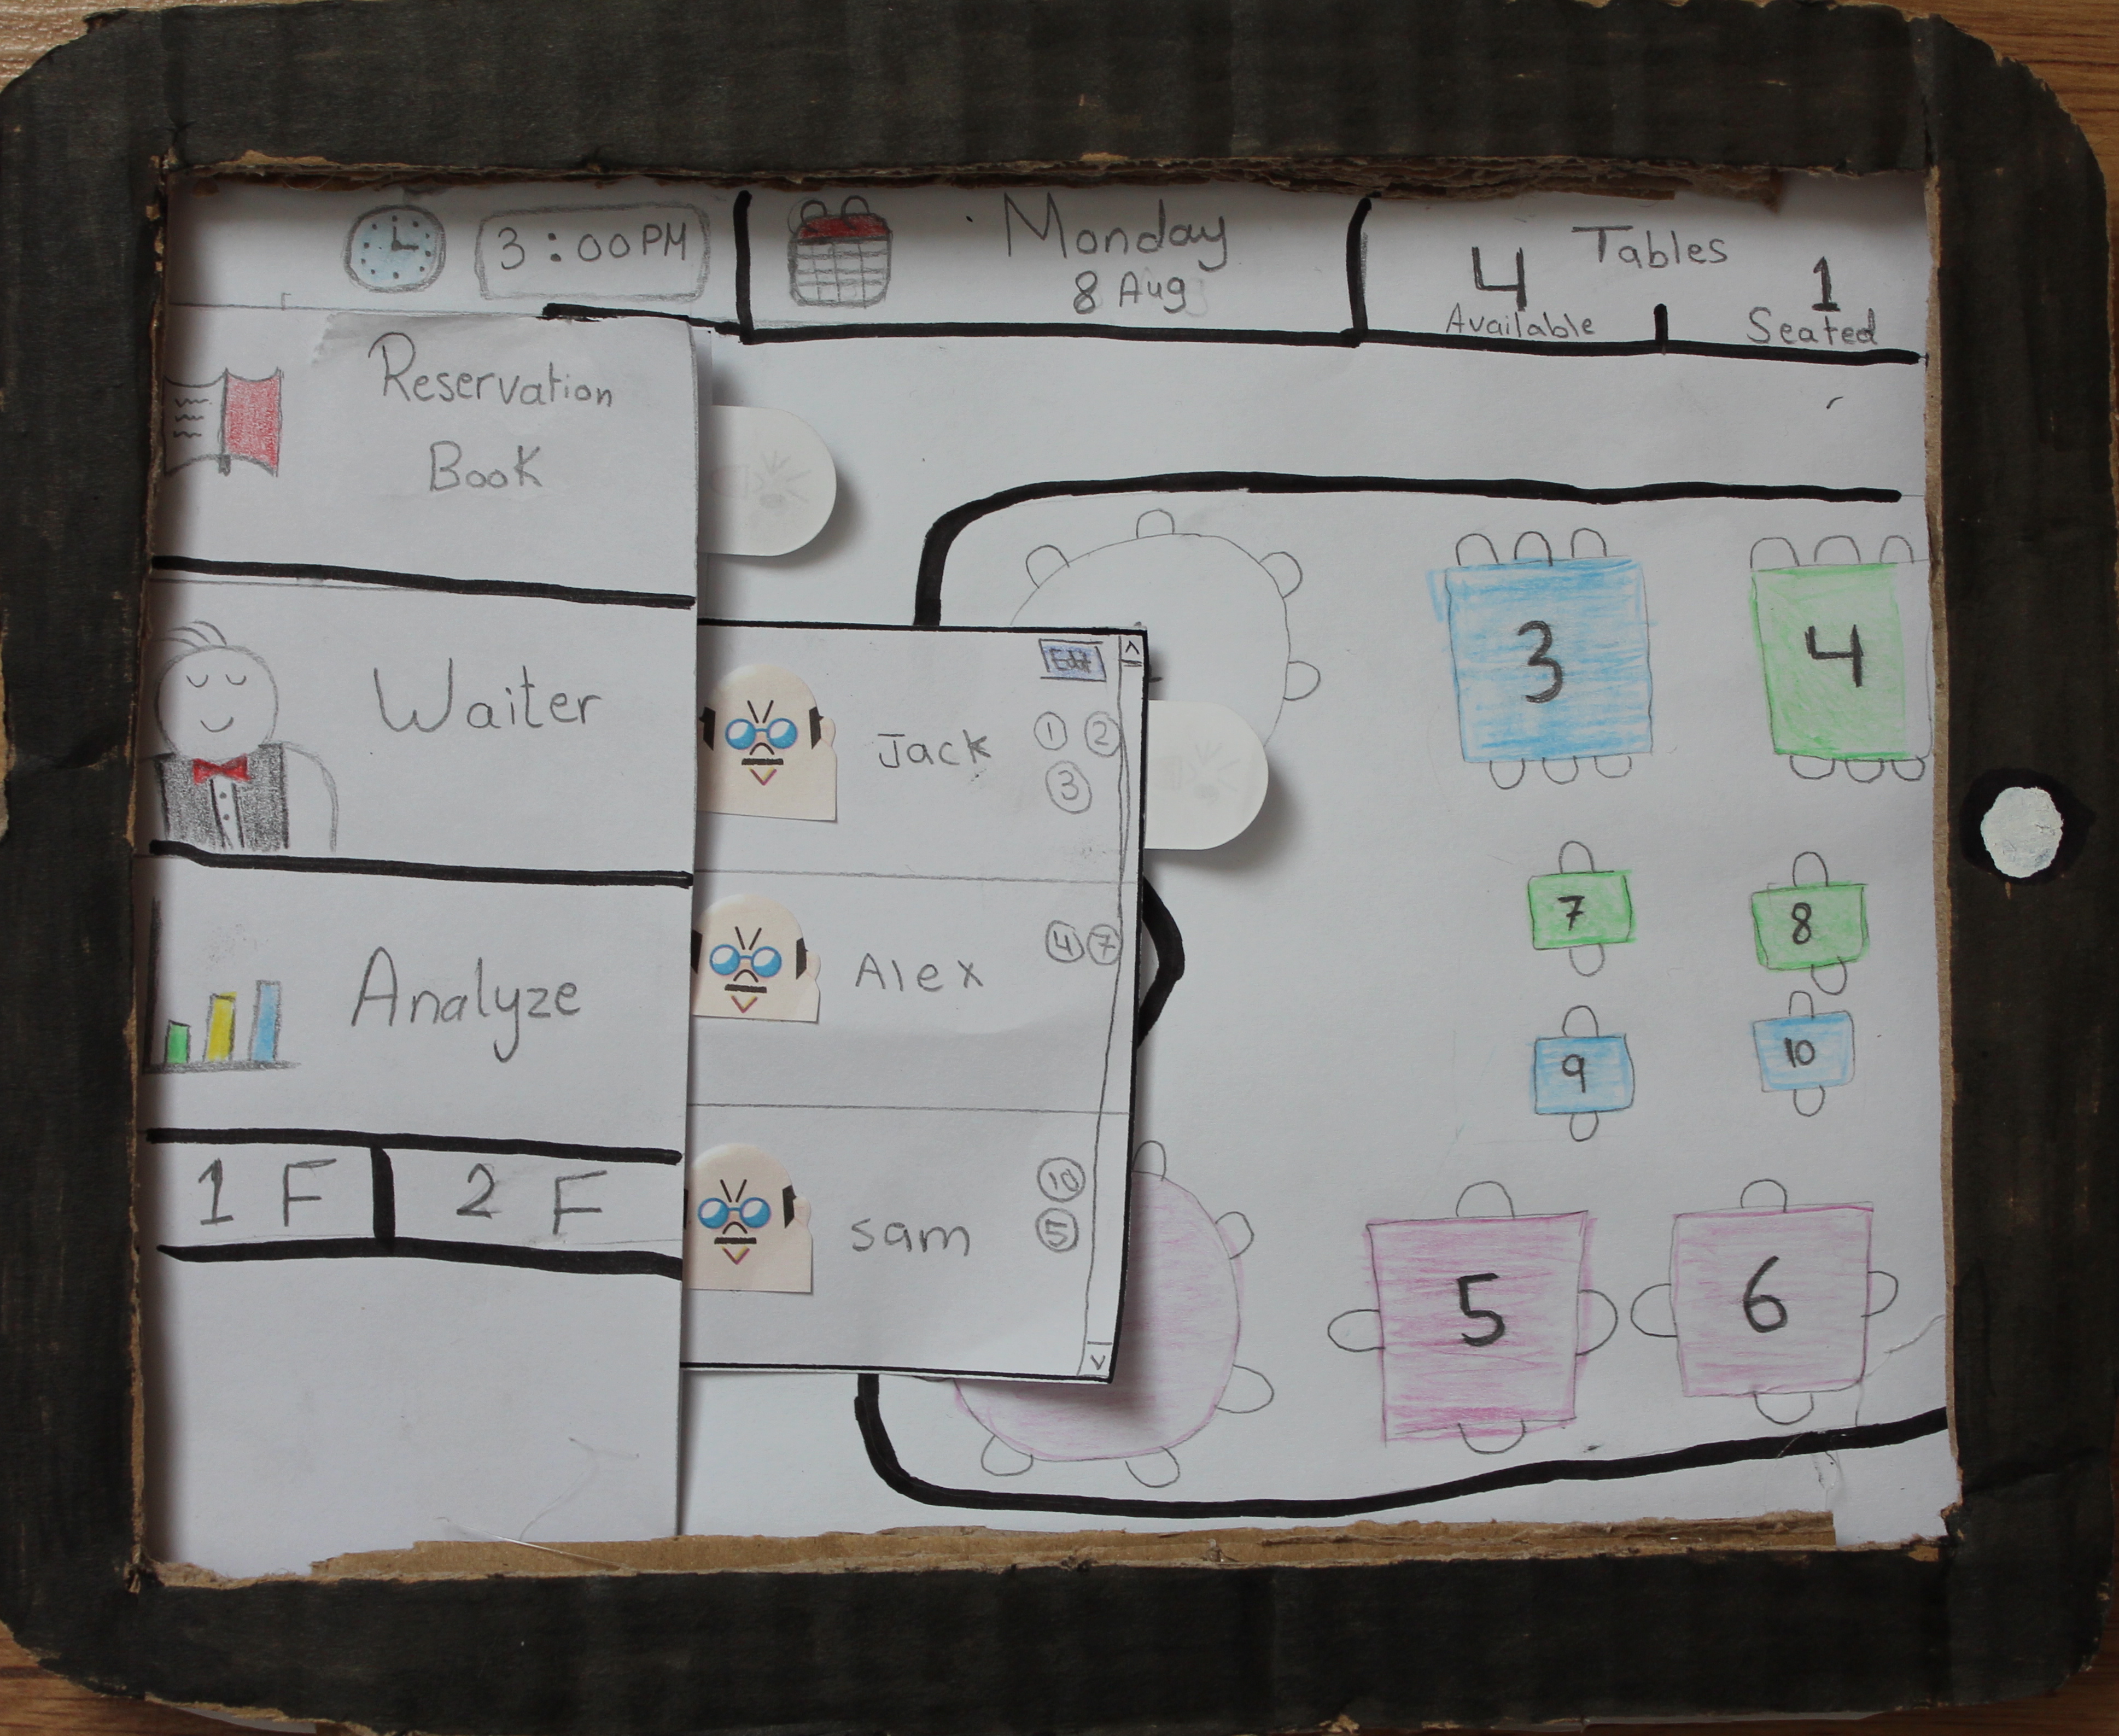 3:00PM
Monday
8 Aug
Tables
4
1
Available
Seated
Reservation
Book
Waiter
Analyze
1 F
2 F
Edit
^
Jack
1 2
3
Alex
4 7
sam
10
5
v
3
4
7
8
9
10
5
6